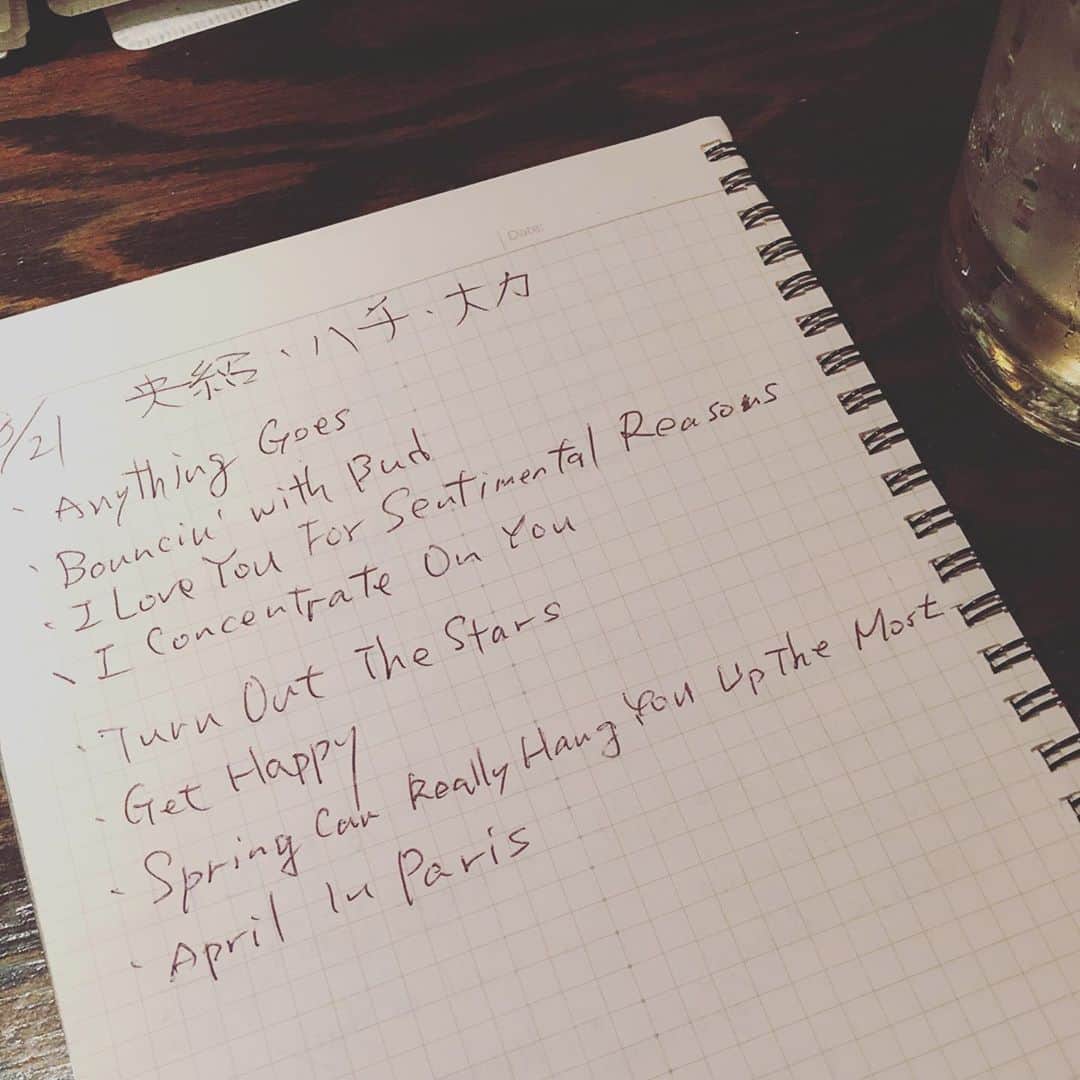 Date:
央紹、ハチ、大力
/21
・Anything Goes
・Bouncin' with Bud
・I Love You For Sentimental Reasons
・I Concentrate On You
・Turn Out The Stars
・Get Happy
・Spring Can Really Hang You Up The Most
・April In Paris